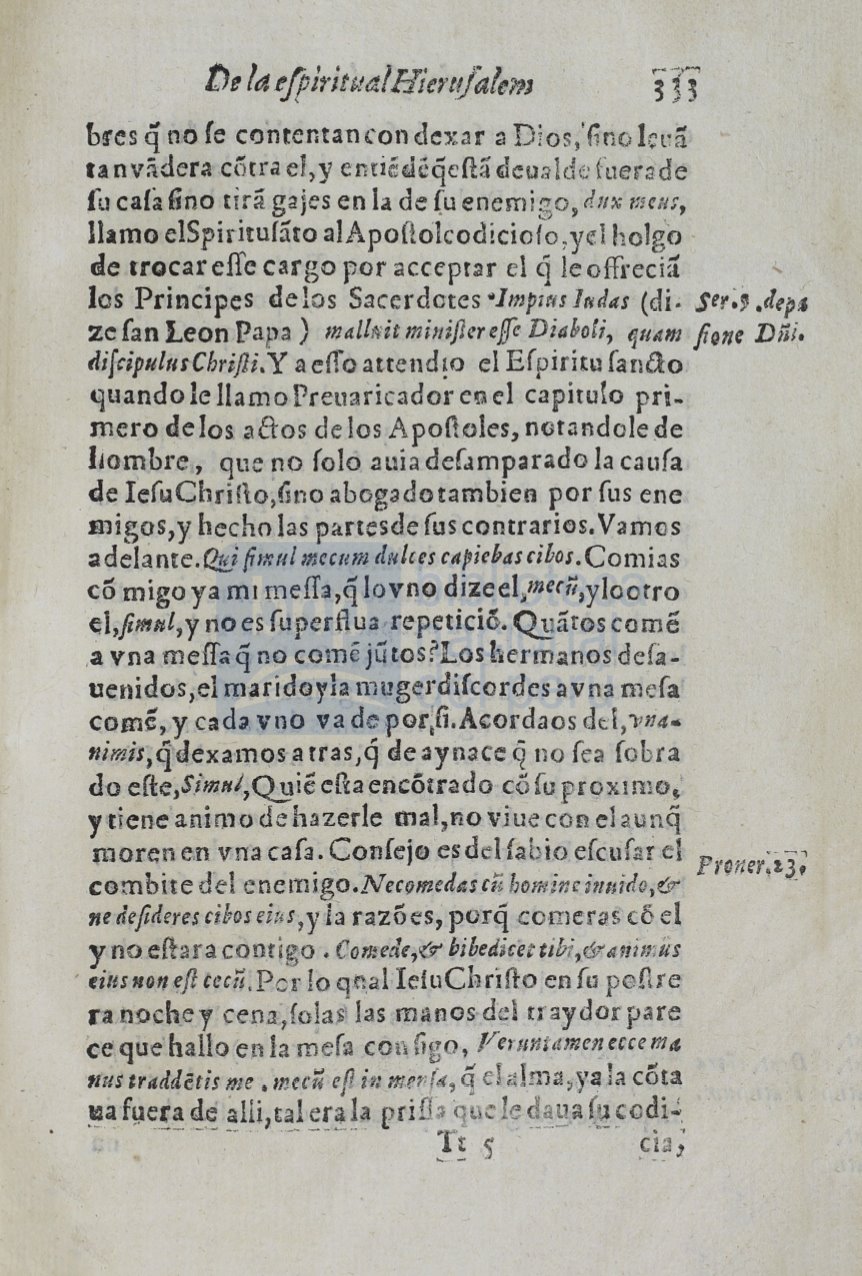 De la eſpiritual Hieruſalem 333
bres q̃ no ſe contentan con dexar a Dios, ſino leuã
tan vãdera cõtra el, y entiẽdẽ q̃ eſtã deualde fuera de
ſu caſa ſino tirã gajes en la de ſu enemigo, dux meus,
llamo el Spirituſãto al Apoſtol codicioſo, y el holgo
de trocar eſſe cargo por acceptar el q̃ le offreciã
los Principes de los Sacerdotes Impius Iudas (di- Ser. 9. de pa
ze ſan Leon Papa) malluit miniſter eſſe Diaboli, quam ſione Dñi.
diſcipulus Chriſti. Y a eſſo attendio el Eſpiritu ſancto
quando le llamo Preuaricador en el capitulo pri-
mero de los actos de los Apoſtoles, notandole de
hombre, que no ſolo auia deſamparado la cauſa
de IeſuChriſto, ſino abogado tambien por ſus ene
migos, y hecho las partes de ſus contrarios. Vamos
adelante. Qui ſimul mecum dulces capiebas cibos. Comias
cõ migo y a mi meſſa, q̃ lo vno dize el, mecũ, y lo otro
el, ſimul, y no es ſuperflua repeticiõ. Quãtos comẽ
a vna meſſa q̃ no comẽ jũtos? Los hermanos deſa-
uenidos, el marido y la muger diſcordes a vna meſa
comẽ, y cada vno va de por ſi. Acordaos del, vna-
nimis, q̃ dexamos atras, q̃ de ay nace q̃ no ſea ſobra
do eſte, Simul, Quiẽ eſta encõtrado cõ ſu proximo,
y tiene animo de hazerle mal, no viue con el aunq̃
moren en vna caſa. Conſejo es del ſabio eſcuſar el
combite del enemigo. Ne comedas cũ homine inuido, & Prouer. 23.
ne deſideres cibos eius, y la razõ es, porq̃ comeras cõ el
y no eſtara contigo. Comede, & bibe dicet tibi, & animus
eius non eſt tecũ. Por lo qual IeſuChriſto en ſu poſtre
ra noche y cena, ſolas las manos del traydor pare
ce que hallo en la meſa conſigo, Veruntamen ecce ma
nus traddẽtis me. mecũ eſt in menſa, q̃ el alma, ya la cõta
ua fuera de alli, tal era la priſſa que le daua ſu codi-
Tt 5 cia,